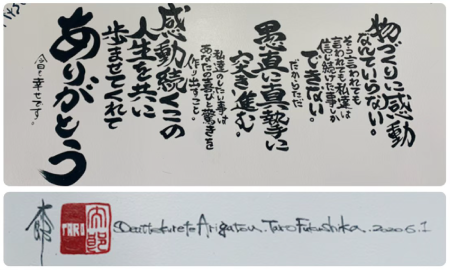 物づくりに感動
なんていらない。
そう言われても
言われても私達は
信じ続けた事しか
できない。
だからただ
愚直に真摯に
突き進む。
私達のしたい事は
あなたの喜びと驚きを
作り出すこと。
感動続くこの
人生を共に
歩ませてくれて
ありがとう
今日も幸せです。
TARO
Deattekurete Arigatou. Taro Fukushika. 2020 6.1